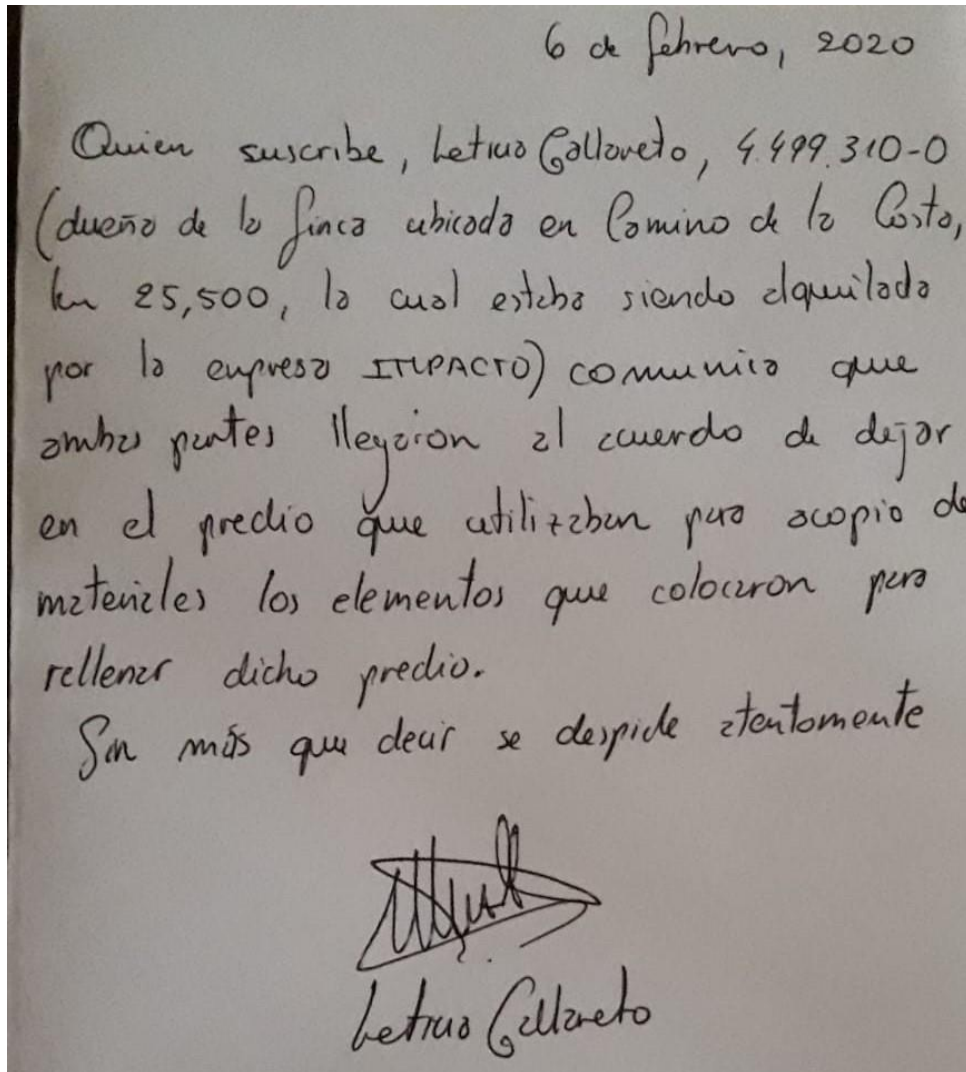 6 de febrero, 2020
Quien suscribe, Leticia Gallareto, 4.499.310-0
(dueña de la finca ubicada en Camino de la Costa,
km 25,500, la cual estaba siendo alquilada
por la empresa IMPACTO) comunico que
ambas partes llegaron al acuerdo de dejar
en el predio que utilizaban para acopio de
materiales los elementos que colocaron para
rellenar dicho predio.
Sin más que decir se despide atentamente
Leticia Gallareto